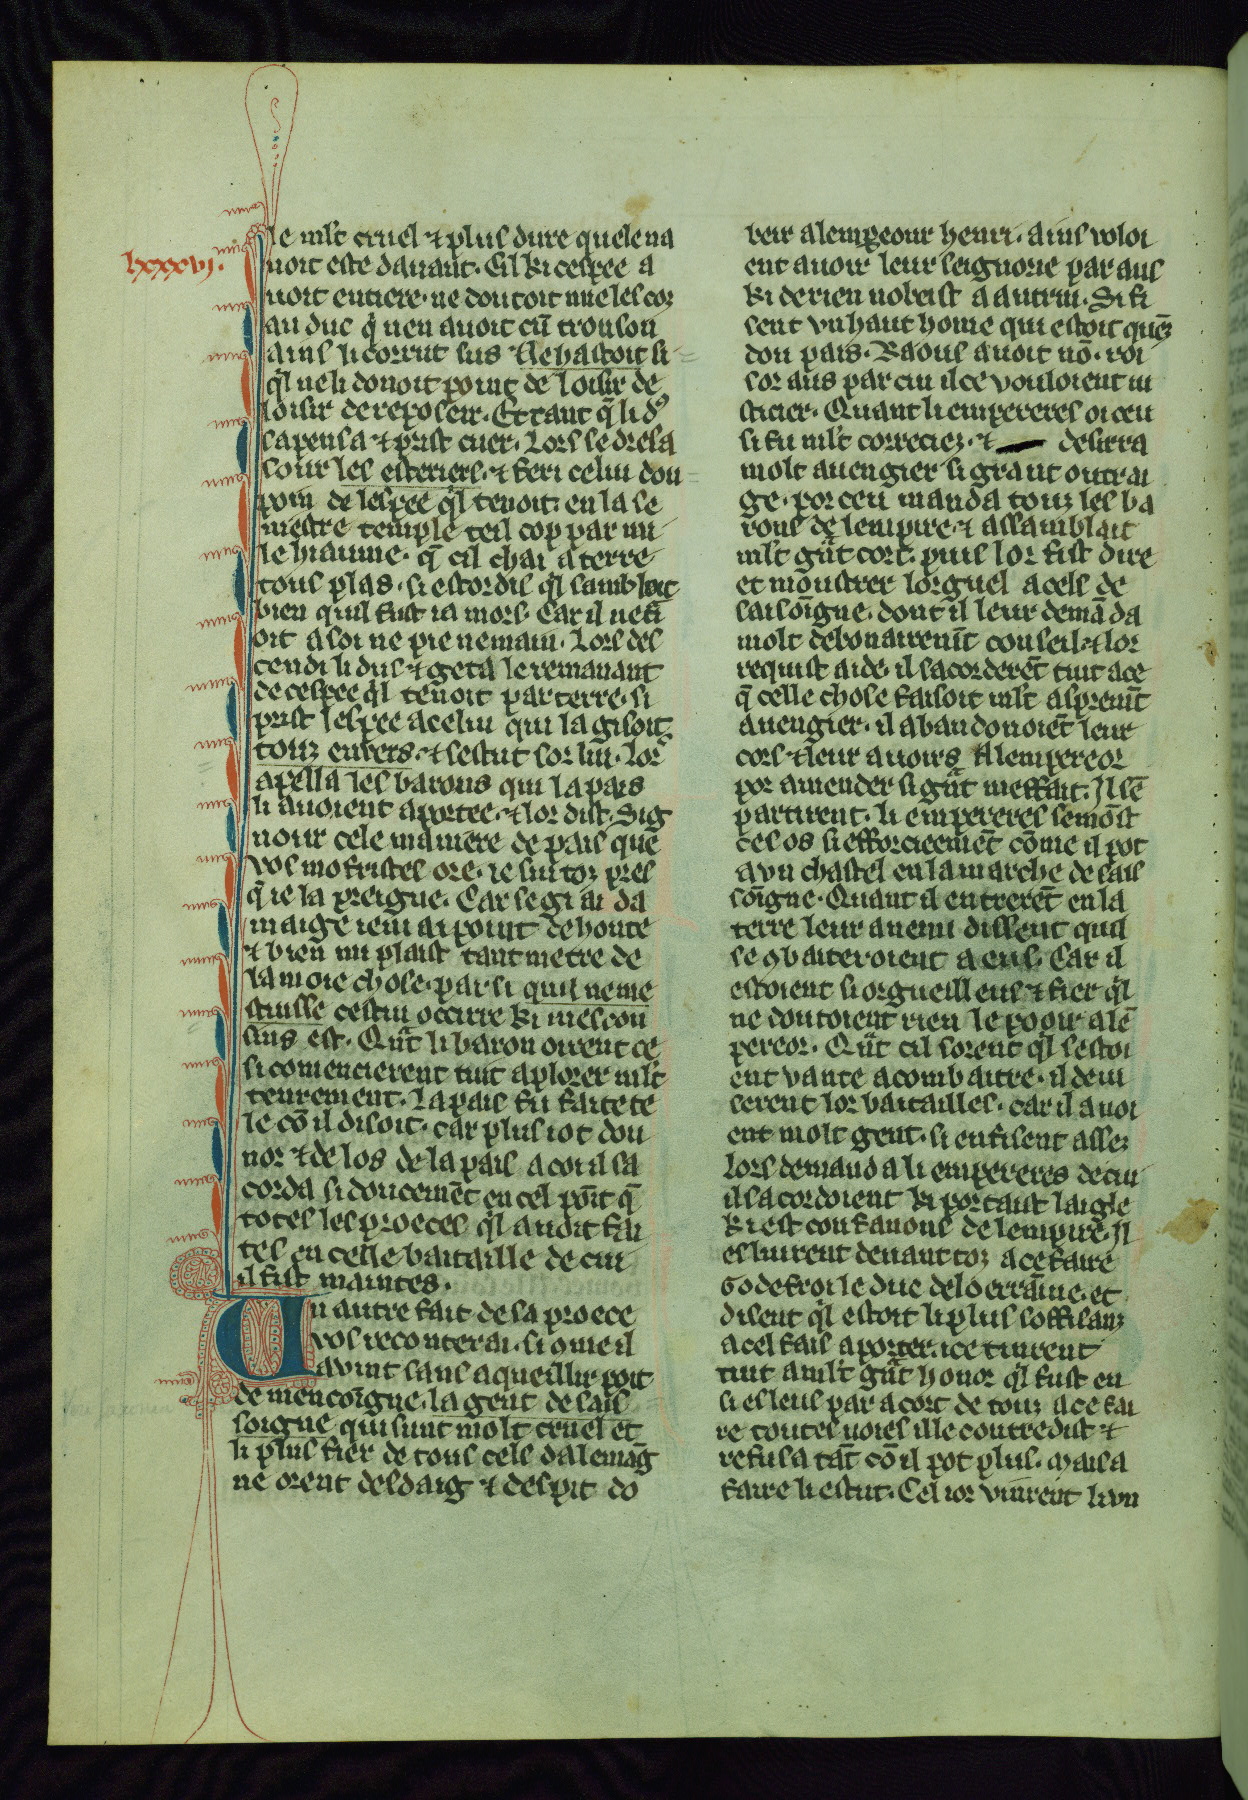 lxxxvj.
le mlt' cruel ⁊ plus dure quele na
uoit este dauant. Cil ki cespee a
uoit entiere. ne doutoit mie les cox
au duc q̓ nen auoit cū tronson
ains li corrut sus ⁊ le hastoit si
ql̓ ne li donoit point de loisir de
loisir de reposeir. Et tant q̄ li d⁹
sapensa ⁊ prist cuer. Lors se dresa
sour les esteriers. ⁊ feri celui dou
poin de lespee ql̓ tenoit. en la se
nestre temple teil cop par mi
le hiaume. q̄ cil chai a terre
tous plas. si estordis ql̓ sambloit
bien quil fust ia mors. Car il net
oit a soi ne pie ne main. Lors des
cendi li dus. ⁊ geta le remanant
de cespee ql̓ tenoit par terre. si
prist lespee a celui qui la gisoit
touz enuers. ⁊ sestut sor lui. Lor
apella les barons qui la pais
li auoient aportee. ⁊ lor dist. Sig
nour cele maniere de pais que
vos mofristes ore. ie sui toz pres
q̄ ie la preigne. Car se gi ai da
maige ie ni ai point de honte
⁊ bien mi plaist tant metre de
la moie chose. par si quil neme
stuisse cestui occirre ki mes cou
sins est. Qn̄t li baron oirent ce
si comencierent tuit a plorer mlt'
tenrement. La pais fu faite te
le cō il disoit. car plus i ot dou
nor ⁊ de los de la pais a coi il sa
corda si doucemēt en cel poīt q̄
totes les proeces ql̓ auoit fai
tes en celle baitaille de cui
il fist maintes.
Un autre fait de sa proece
vos reconterai. si ꝯme il
auint sans aqueillir poit
de mencoīgne. la gent de sais
soigne qui sunt molt cruel et
li plus fier de tous cels dalemaḡ
ne orent desdaig ⁊ despit do
beir a lempeour henri. ains voloi
ent auoir leur seignorie par aus
ki de rien nobeist a autrui. Si fi
sent vn haut home qui estoit quēz
dou pais. Raous auoit nō. roi
sor aus par cui il ce vouloient iu
sticier. Quant li empereres oi ceu
si fu mlt' correciez. ⁊ desirra
molt auengier si grant outrai
ge. por ceu manda touz les ba
rons de lempire. ⁊ assamblait
mlt' gn̄t cort. puis lor fist dire
et moustrer lorguel a cels de
saisoīgne. dont il leur demāda
molt debonairemīt conseil. ⁊ lor
requist aide. il sacorderēt tuit a ce
q̄ celle chose faisoit mlt' asprem̄t
auengier. il abandonoiēt leur
cors ⁊ leur auoirs A lempereor
por amender si gn̄t meffait. Il sē
partirent. li empereres semōst
ces os si efforcieemēt cōme il pot
a vn chastel en la marche de sais
soīgne. Quant il entrerēt en la
terre leur anemi dissent quil
se ꝯbaiteroient a eus. Car il
estoient si orgueilleus ⁊ fier ql̓
ne doutoient rien le pooir a lē
pereor. Qn̄t cil sorent ql̓ sestoi
ent vante a combaitre. il deui
serent lor baitailles. car il auoi
ent molt gent. si en fisent assez
Lors demanda li empereres de cui
il sacordoient ki portaist laigle
ki est confanons de lempire. Il
eslurent deuant toz a ce faire
Godefroi le duc de loerraīne. et
disent ql̓ estoit li plus soffisanz
a cel fais aporter. ice tinrent
tuit a mlt' gn̄t honor ql̓ fust en
si esleus par acort de touz a ce fai
re toutes uoies ille contredist ⁊
refusa tāt cō il pot plus. Mais a
faire li estut. Cel ior vinrent li vn